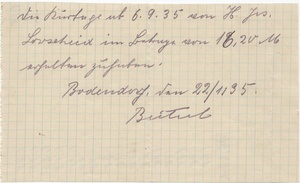 die Kurtage ab 6.9.35 von H. Jos.
Lorscheid im Betrage von 18,20 M
erhalten zu haben.
Bodendorf, den 22/1135.